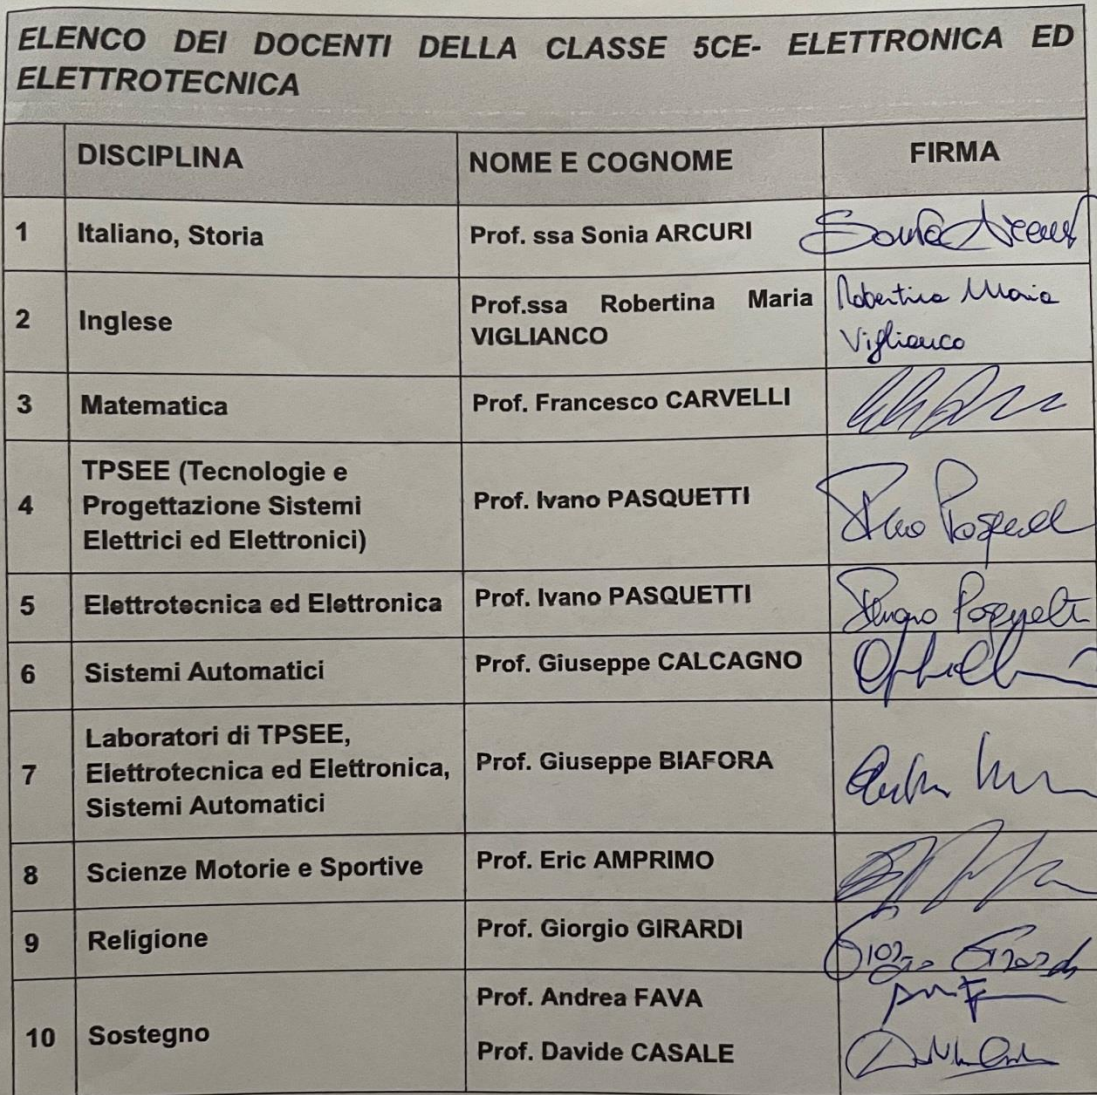 ELENCO DEI DOCENTI DELLA CLASSE 5CE- ELETTRONICA ED
ELETTROTECNICA
DISCIPLINA NOME E COGNOME FIRMA
1 Italiano, Storia Prof. ssa Sonia ARCURI Sonia Arcuri
2 Inglese Prof.ssa Robertina Maria VIGLIANCO Robertina Maria
Viglianco
3 Matematica Prof. Francesco CARVELLI
4 TPSEE (Tecnologie e
Progettazione Sistemi
Elettrici ed Elettronici) Prof. Ivano PASQUETTI
5 Elettrotecnica ed Elettronica Prof. Ivano PASQUETTI
6 Sistemi Automatici Prof. Giuseppe CALCAGNO
7 Laboratori di TPSEE,
Elettrotecnica ed Elettronica,
Sistemi Automatici Prof. Giuseppe BIAFORA
8 Scienze Motorie e Sportive Prof. Eric AMPRIMO
9 Religione Prof. Giorgio GIRARDI Giorgio Girardi
10 Sostegno Prof. Andrea FAVA
Prof. Davide CASALE